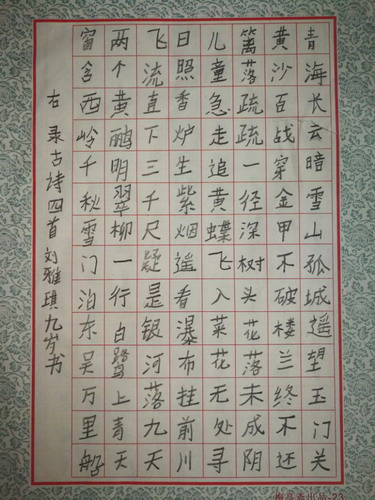 青海长云暗雪山孤城遥望玉门关
黄沙百战穿金甲不破楼兰终不还
篱落疏疏一径深树头花落未成阴
儿童急走追黄蝶飞入菜花无处寻
日照香炉生紫烟遥看瀑布挂前川
飞流直下三千尺疑是银河落九天
两个黄鹂明翠柳一行白鹭上青天
窗含西岭千秋雪门泊东吴万里船
右录古诗四首刘雅琪九岁书